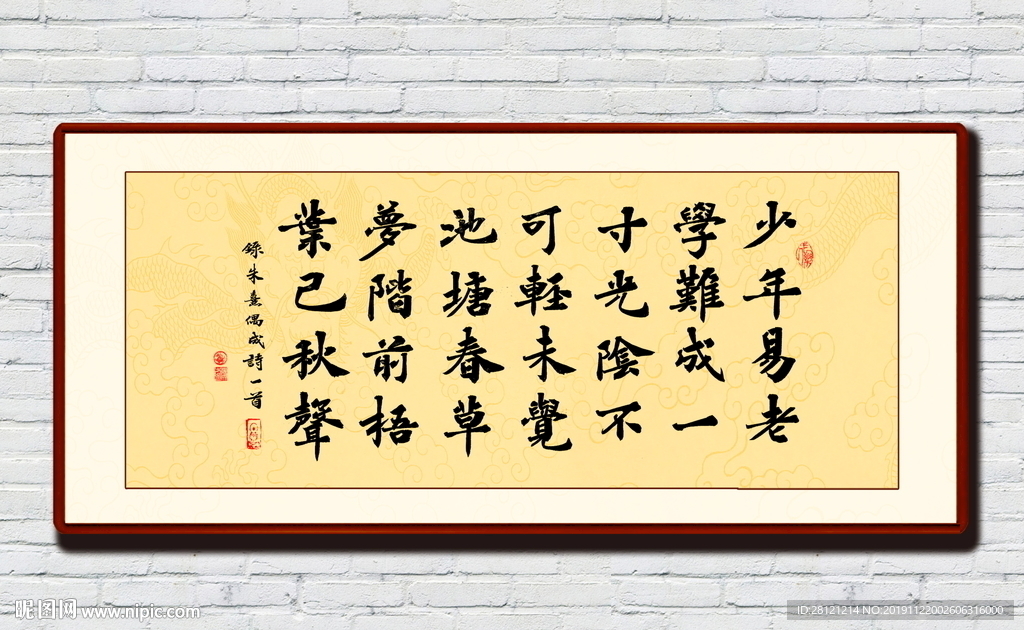 少年易老
學難成一
寸光陰不
可輕未覺
池塘春草
夢階前梧
葉已秋聲
錄朱熹偶成詩一首
昵图网 www.nipic.com
ID:28121214 NO:20191122002606316000